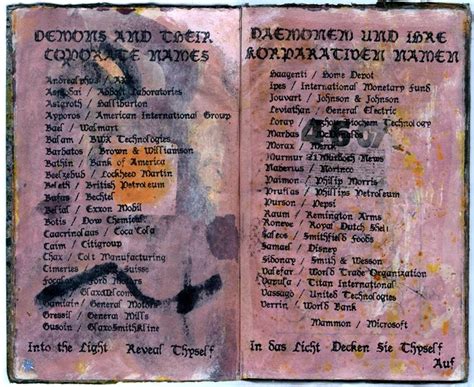 DEMONS AND THEIR
COPORATE NAMES
Andrealphus / AXA
Asmodai / Abbott Laboratories
Astaroth / Halliburton
Ayporos / American International Group
Bael / Walmart
Balam / BWX Technologies
Barbatos / Brown & Williamson
Bathin / Bank of America
Beelzebub / Lockheed Martin
Beleth / British Petroleum
Bafus / Bechtel
Belial / Exxon Mobil
Botis / Dow Chemical
Caacrinolaas / Coca Cola
Caim / Citigroup
Chax / Colt Manufacturing
Cimeries / Suisse
Ford Motors
GlaxoWellcome
Gamigin / General Motors
Gressil / General Mills
Gusoin / GlaxoSmithKline
Into the Light Reveal Thyself
DAEMONEN UND IHRE
KORPARATIVEN NAMEN
Haagenti / Home Depot
Ipes / International Monetary Fund
Jouvart / Johnson & Johnson
Leviathan / General Electric
Loray / Technology
Marbas
Morax / Merck
Murmur / Murdoch News
Naberius / Norinco
Paimon / Philip Morris
Pruflas / Phillips Petroleum
Purson / Pepsi
Raum / Remington Arms
Roneve / Royal Dutch Shell
Saleos / Smithfield Foods
Samael / Disney
Sidonay / Smith & Wesson
Valefar / World Trade Organization
Vapula / Titan International
Vassago / United Technologies
Verrin / World Bank
Mammon / Microsoft
In das Licht Decken Sie Thyself
Auf